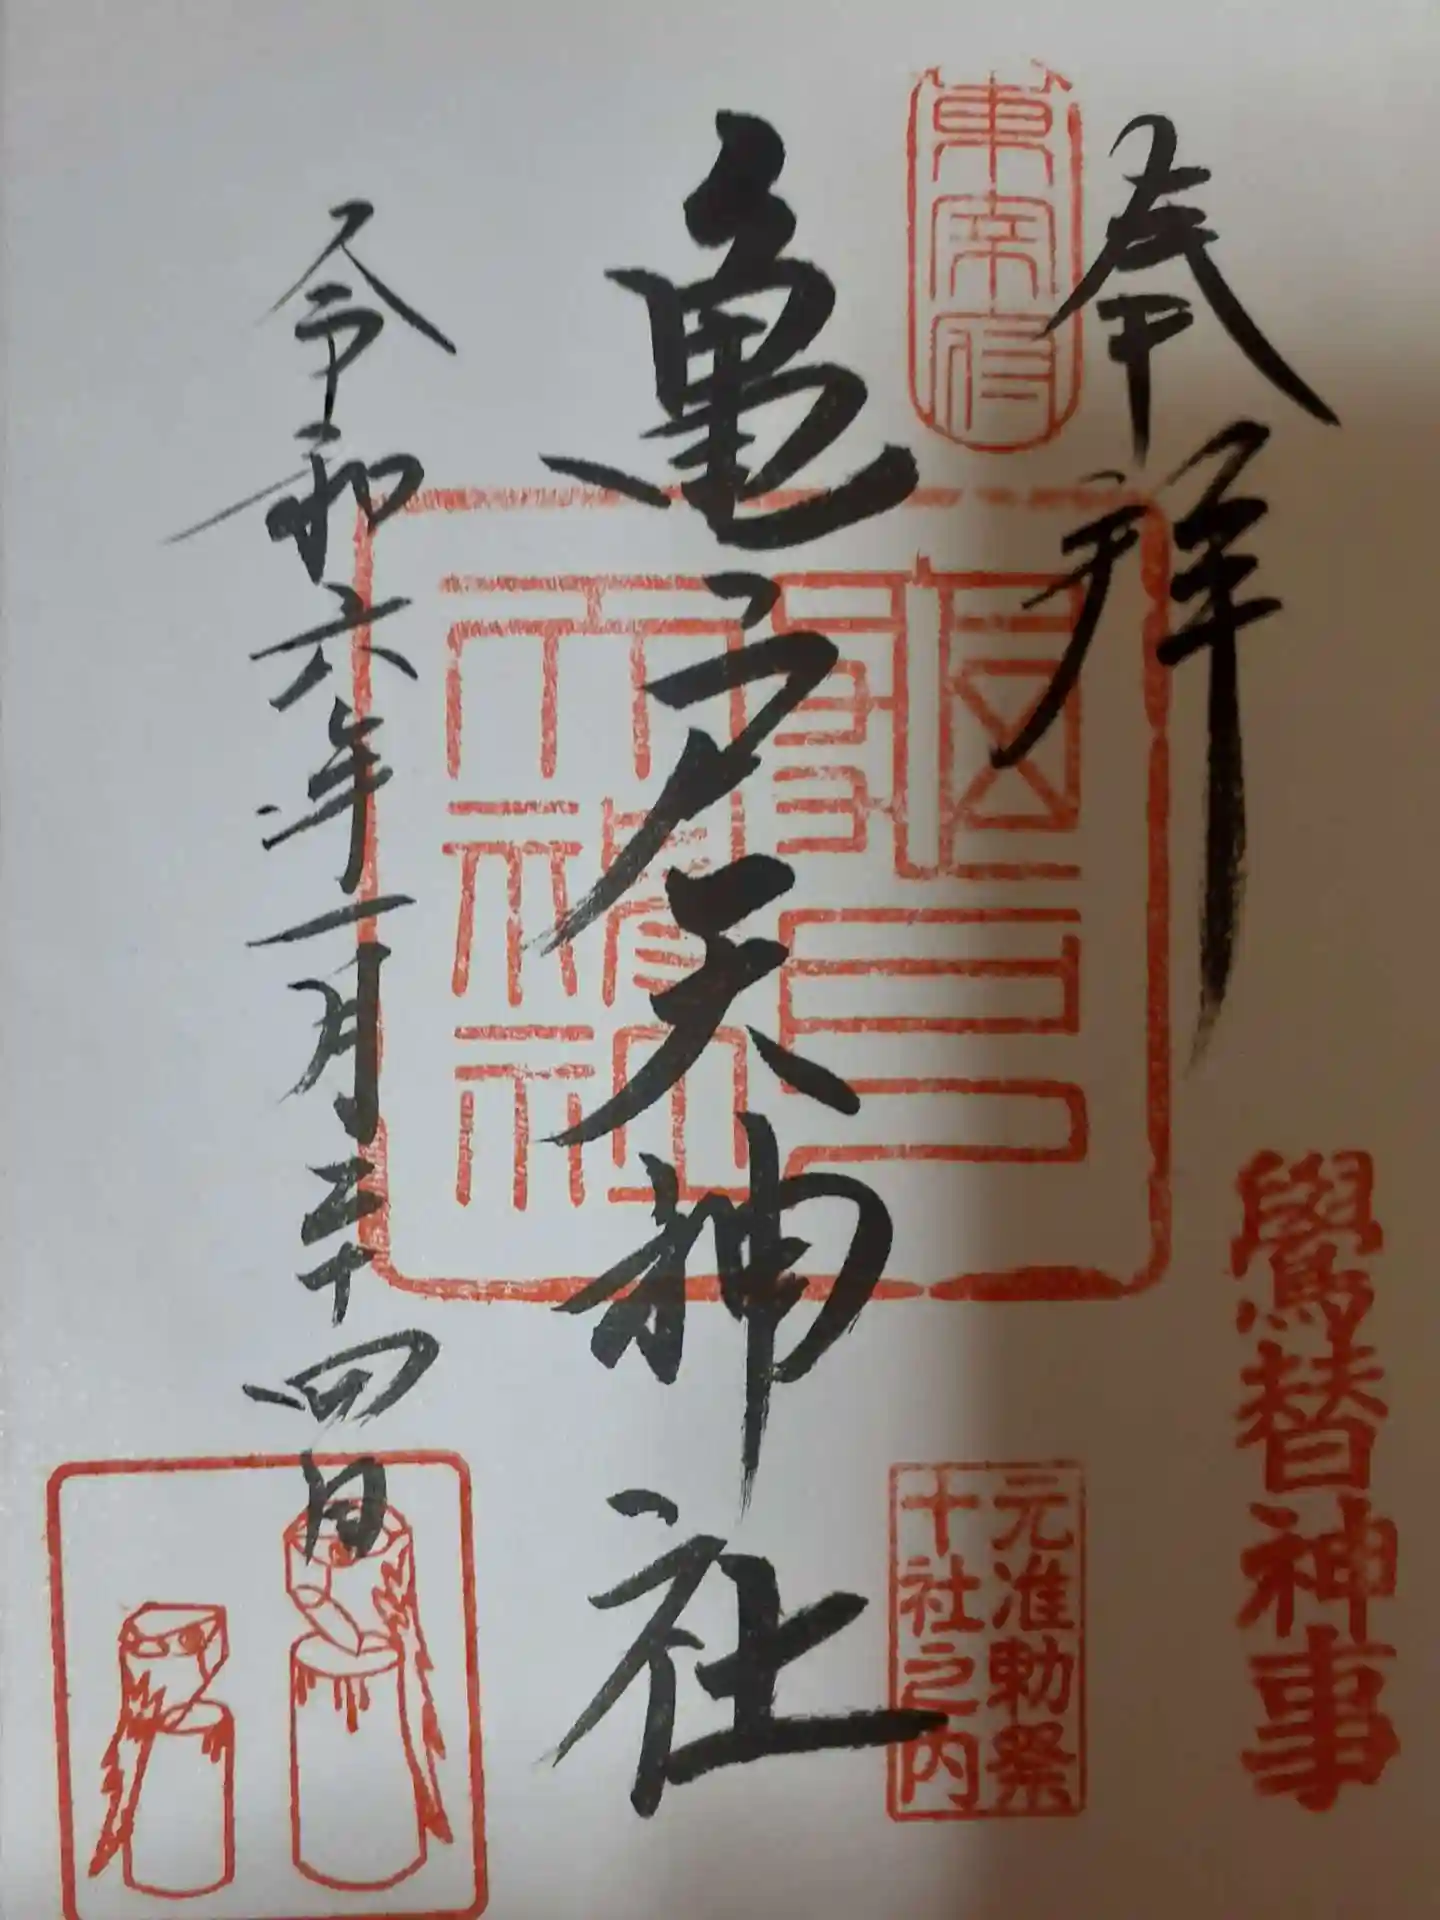 奉拝
東宰府
亀戸天神社
令和六年一月二十四日
鷽替神事
元准勅祭
十社之内